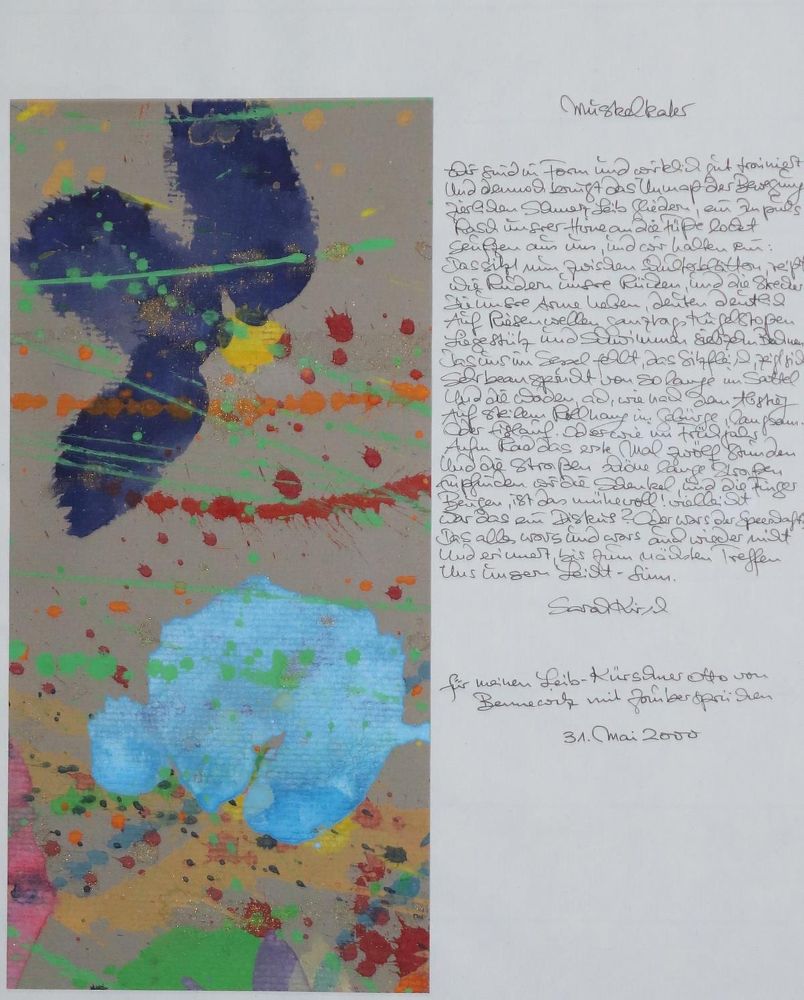 Muskelkater
Wir sind in Form und wirklich gut trainiert
Und dennoch bringt das Unmaß der Bewegung
Leib Gliedern, ein Impuls
Rast unsrer Hirne an die Füße
Seufzen aus uns, und wir halten ein:
Das sitzt nun zwischen Schulterblättern,
Wie Rudern unsre Rücken, und die
Die unsre Arme heben,
Auf Riesenwellen ganztags Kugelstoßen
Liegestütz und Schwimmen
Das uns im Sessel fehlt, das Sitzfleisch zeigt sich
Sehr beansprucht von so lange im Sattel
Und die Waden, ach, wie nach dem Abstieg
Auf steilem Felshang im Gebirge, langsam.
Oder Eislauf. Oder wie im Frühjahr
Aufm Rad das erste Mal zwölf Stunden
Und die Straßen schöne lange Straßen
wir die Schenkel, und die Finger
Beugen, ist das mühevoll! vielleicht
War das ein Diskus? Oder wars der Speer
Das alles wars und wars auch wieder nicht
Und erinnert bis zum nächsten Treffen
Uns unsern Leicht-Sinn.
Sarah Kirsch
für meinen Leib-Kürschner Otto von
mit Zaubersprüchen
31. Mai 2000